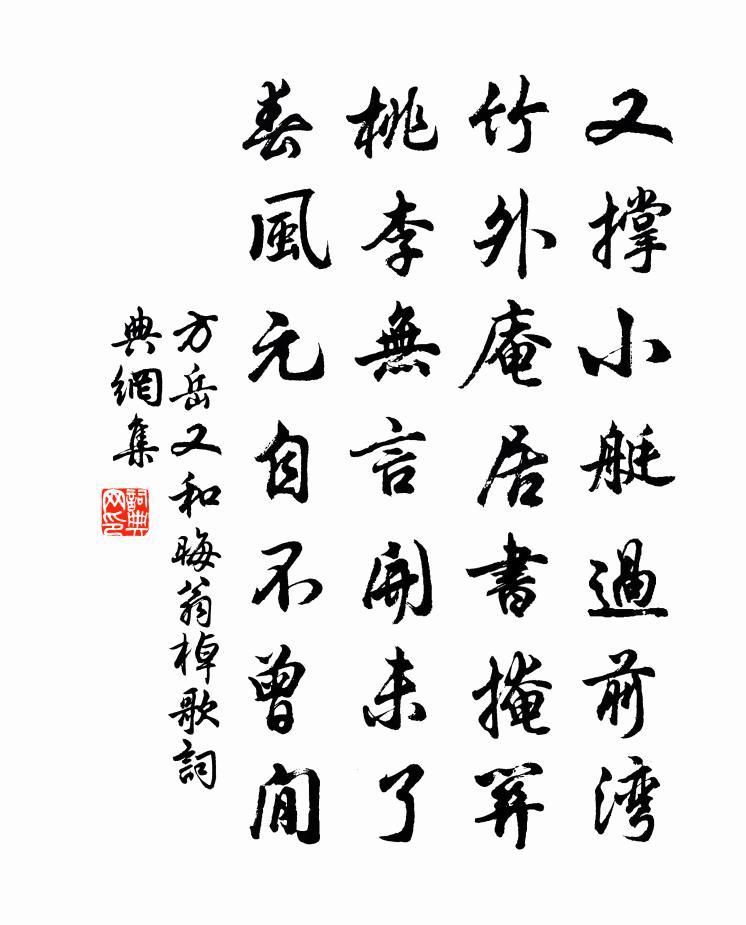 又撑小艇過前湾
竹外庵居書掩關
桃李無言開未了
春風元自不曾閒
方岳又和晦翁棹歌詞
典網集
詞典网印